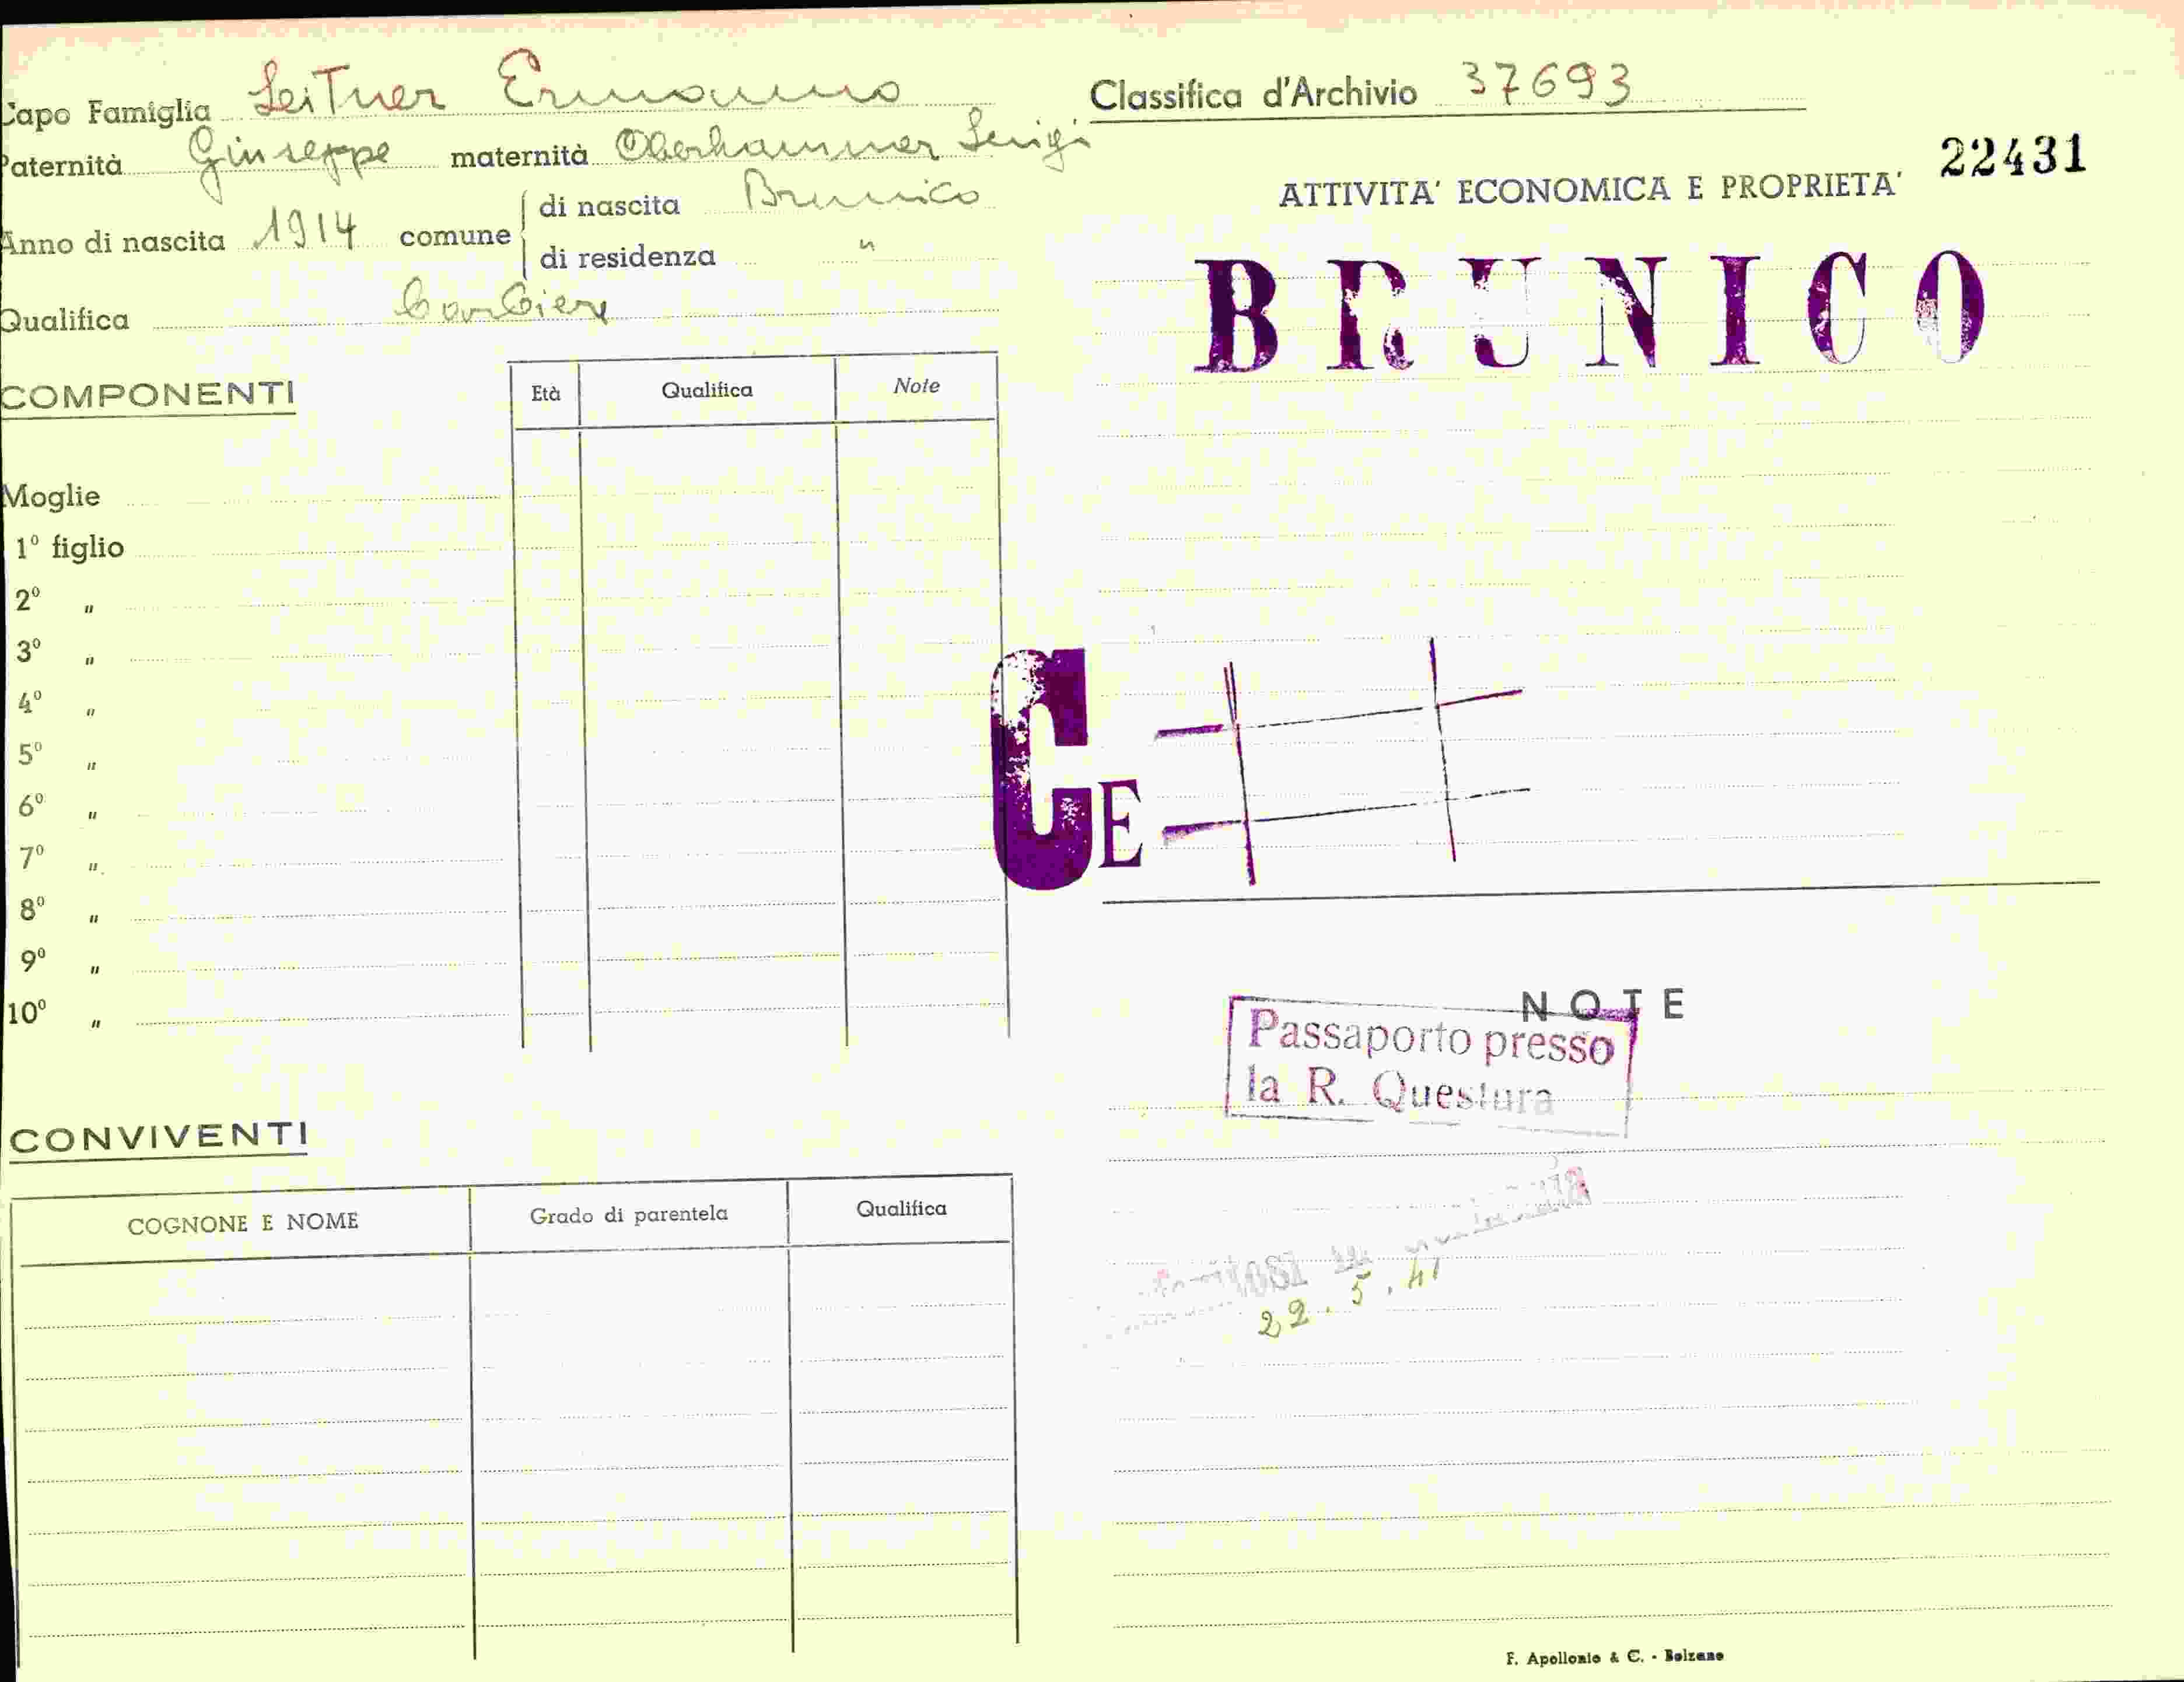 Capo Famiglia Leitner Ermanno
Paternità Giuseppe maternità Oberhammer Luigi
Anno di nascita 1914 comune di nascita Brunico
di residenza "
Qualifica barbiere
COMPONENTI
Età Qualifica Note
Moglie
1º figlio
2º "
3º "
4º "
5º "
6º "
7º "
8º "
9º "
10º "
CONVIVENTI
COGNONE E NOME Grado di parentela Qualifica
Classifica d'Archivio 37693
22431
ATTIVITA' ECONOMICA E PROPRIETA'
BRUNICO
CE
NOTE
Passaporto presso
la R. Questura
22.5.41
F. Apollonio & C. - Bolzano